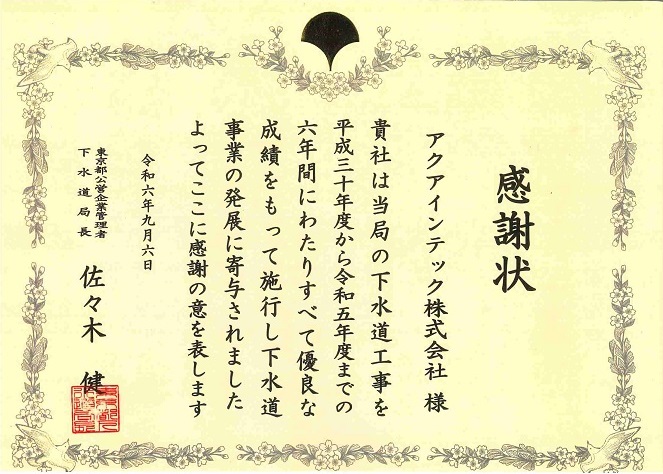 感謝状
アクアインテック株式会社 様
貴社は当局の下水道工事を
平成三十年度から令和五年度までの
六年間にわたりすべて優良な
成績をもって施行し下水道
事業の発展に寄与されました
よってここに感謝の意を表します
令和六年九月六日
東京都公営企業管理者
下水道局長
佐々木 健